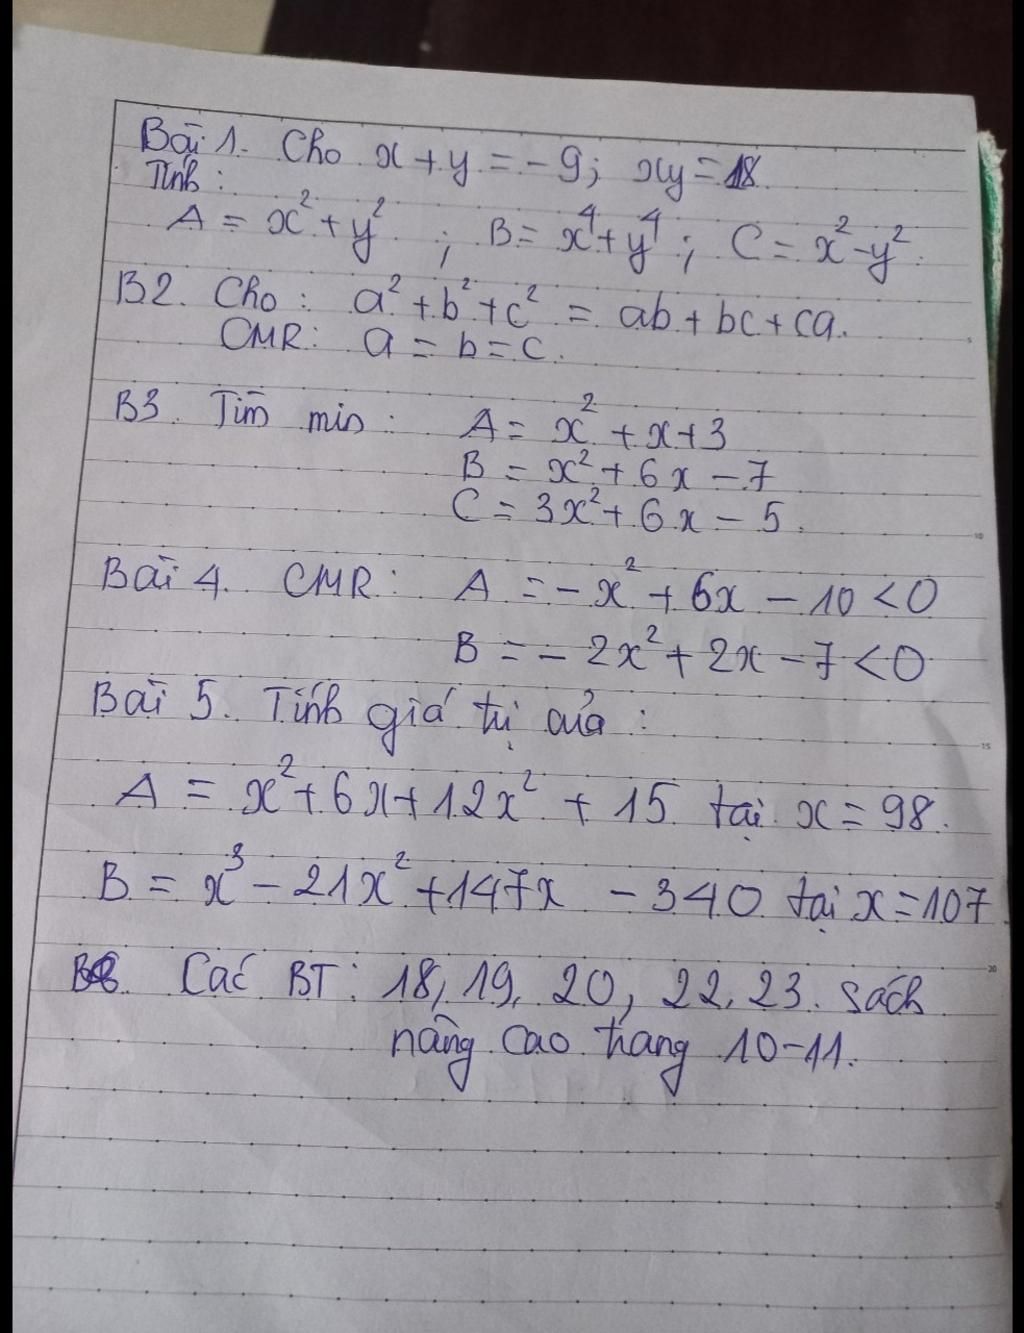 Bài 1. Cho x + y = -9; xy = 18.
Tính:
A = x² + y² ; B = x⁴ + y⁴ ; C = x² - y².
B2. Cho: a² + b² + c² = ab + bc + ca.
CMR: a = b = c.
B3. Tìm min: A = x² + x + 3
B = x² + 6x - 7
C = 3x² + 6x - 5.
Bài 4. CMR: A = -x² + 6x - 10 < 0
B = -2x² + 2x - 7 < 0
Bài 5. Tính giá trị của:
A = x² + 6x + 12x² + 15 tại x = 98.
B = x³ - 21x² + 147x - 340 tại x = 107.
B6. Các BT: 18, 19, 20, 22, 23. sách
nâng cao trang 10-11.